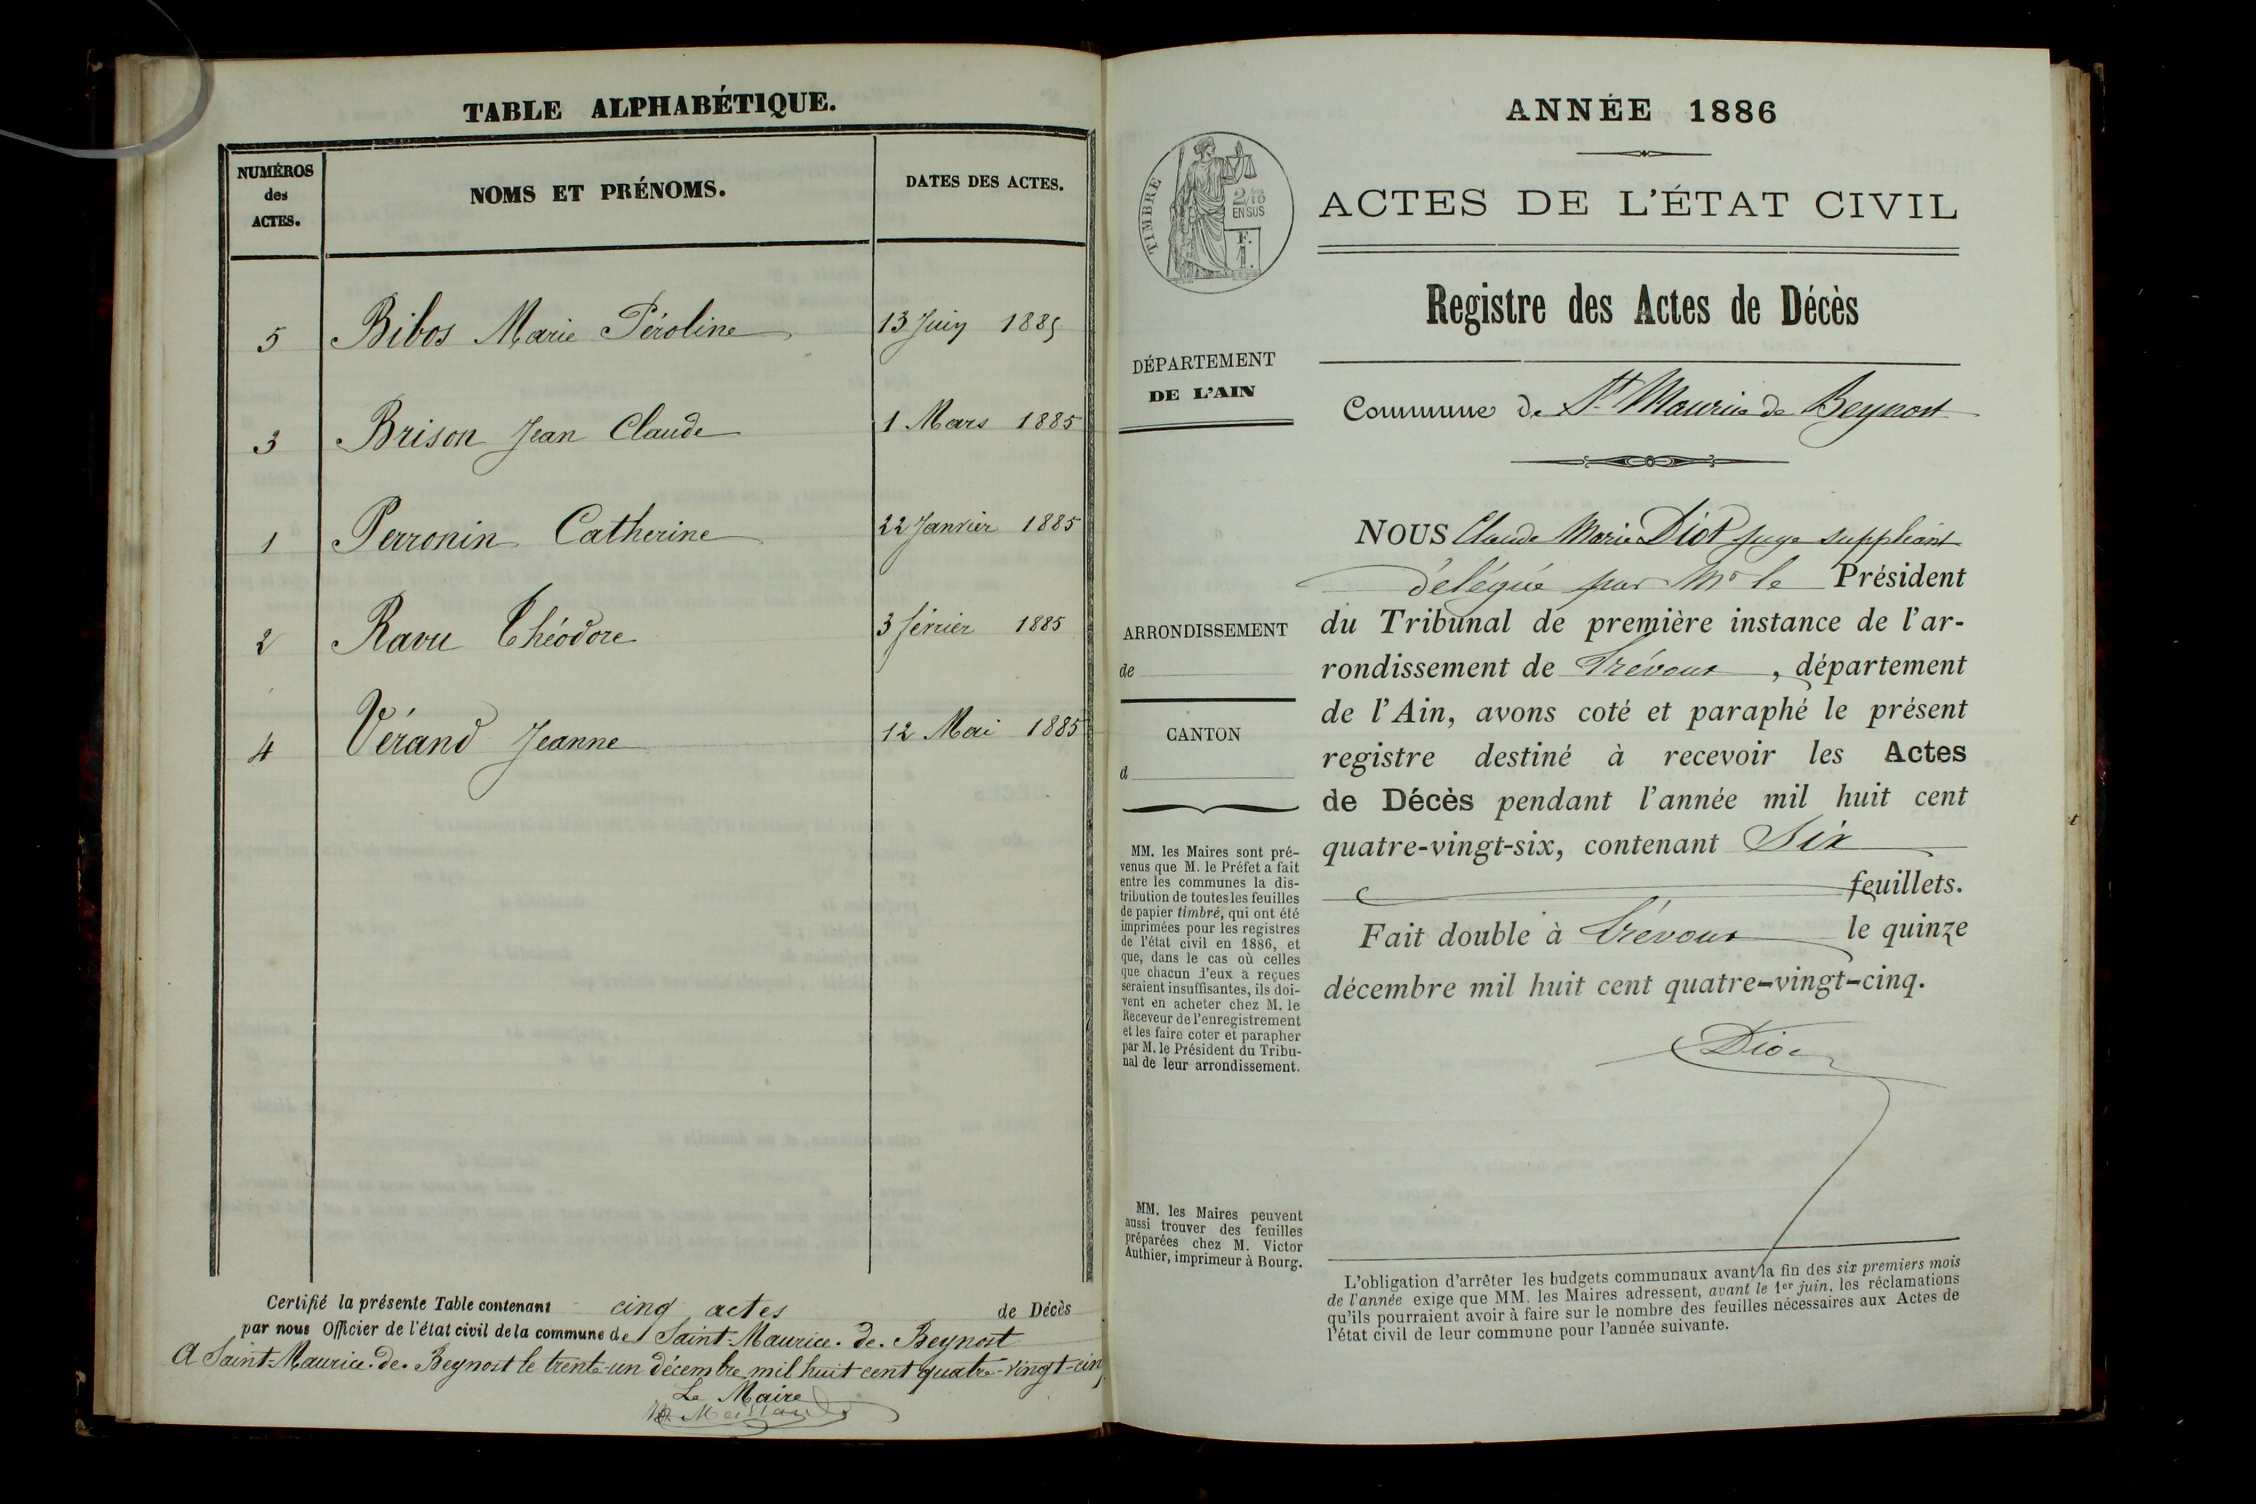 TABLE ALPHABÉTIQUE.
NUMÉROS
des
ACTES.
NOMS ET PRÉNOMS.
DATES DES ACTES.
5 Bibos Marie Péroline 13 Juin 1885
3 Brison Jean Claude 1 Mars 1885
1 Perronin Catherine 22 Janvier 1885
2 Ravu Théodore 3 février 1885
4 Vérand Jeanne 12 Mai 1885
Certifié la présente Table contenant cinq actes de Décès
par nous Officier de l'état civil de la commune de Saint-Maurice-de-Beynost
A Saint-Maurice-de-Beynost le trente-un décembre mil huit cent quatre-vingt-cinq
Le Maire
ANNÉE 1886
TIMBRE
2/10
EN SUS
F.
1.
ACTES DE L'ÉTAT CIVIL
Registre des Actes de Décès
DÉPARTEMENT
DE L'AIN
Commune de St Maurice de Beynost
ARRONDISSEMENT
de
CANTON
d
MM. les Maires sont pré-
venus que M. le Préfet a fait
entre les communes la dis-
tribution de toutes les feuilles
de papier timbré, qui ont été
imprimées pour les registres
de l'état civil en 1886, et
que, dans le cas où celles
que chacun d'eux a reçues
seraient insuffisantes, ils doi-
vent en acheter chez M. le
Receveur de l'enregistrement
et les faire coter et parapher
par M. le Président du Tribu-
nal de leur arrondissement.
MM. les Maires peuvent
aussi trouver des feuilles
préparées chez M. Victor
Authier, imprimeur à Bourg.
NOUS Claude Marie Diot juge suppléant
délégué par Mr le Président
du Tribunal de première instance de l'ar-
rondissement de Trévoux, département
de l'Ain, avons coté et paraphé le présent
registre destiné à recevoir les Actes
de Décès pendant l'année mil huit cent
quatre-vingt-six, contenant Six
feuillets.
Fait double à Trévoux le quinze
décembre mil huit cent quatre-vingt-cinq.
Diot
L'obligation d'arrêter les budgets communaux avant la fin des six premiers mois
de l'année exige que MM. les Maires adressent, avant le 1er juin, les réclamations
qu'ils pourraient avoir à faire sur le nombre des feuilles nécessaires aux Actes de
l'état civil de leur commune pour l'année suivante.